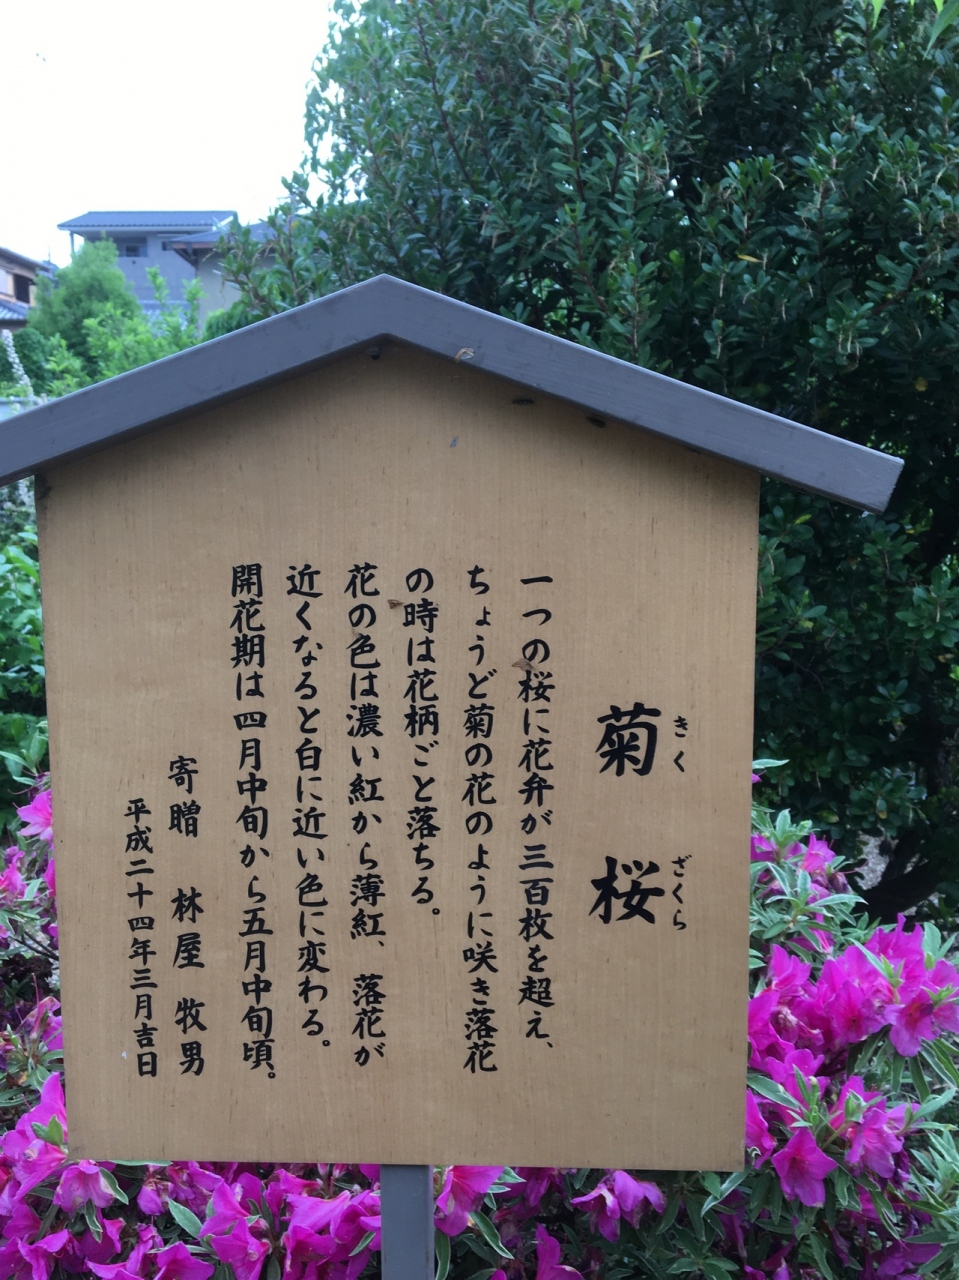 菊桜
きくざくら
一つの桜に花弁が三百枚を超え、
ちょうど菊の花のように咲き落花
の時は花柄ごと落ちる。
花の色は濃い紅から薄紅、落花が
近くなると白に近い色に変わる。
開花期は四月中旬から五月中旬頃。
寄贈 林屋 牧男
平成二十四年三月吉日